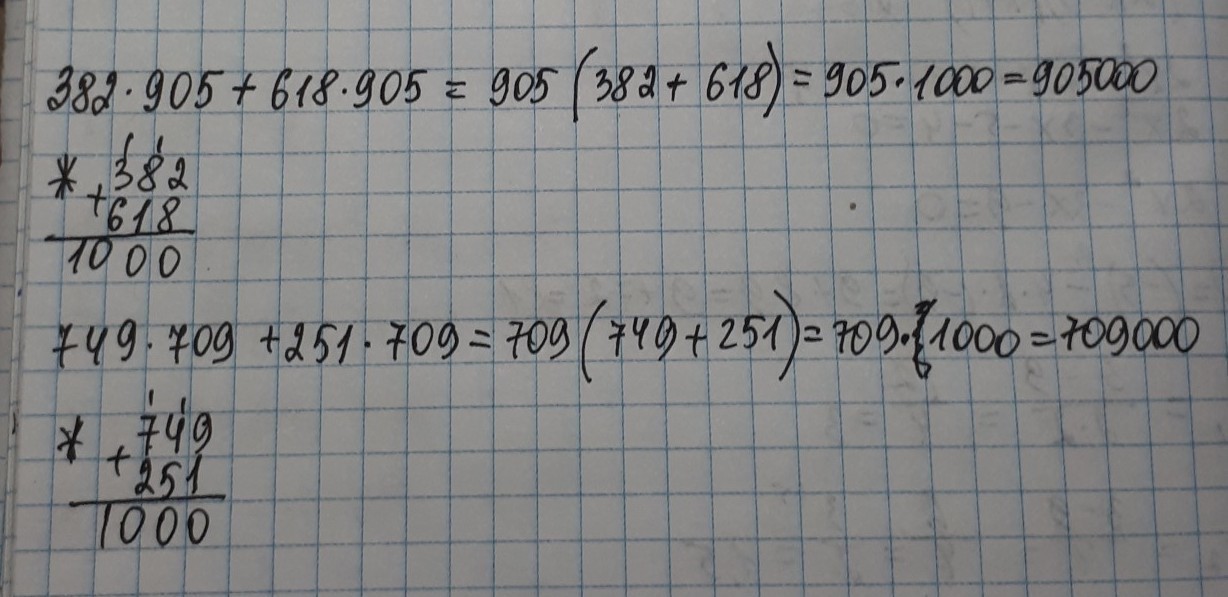 382·905+618·905 = 905(382+618)=905·1000=905000
1 1
* +382
618
1000
749·709+251·709=709(749+251)=709·1000=709000
1 1
* +749
251
1000